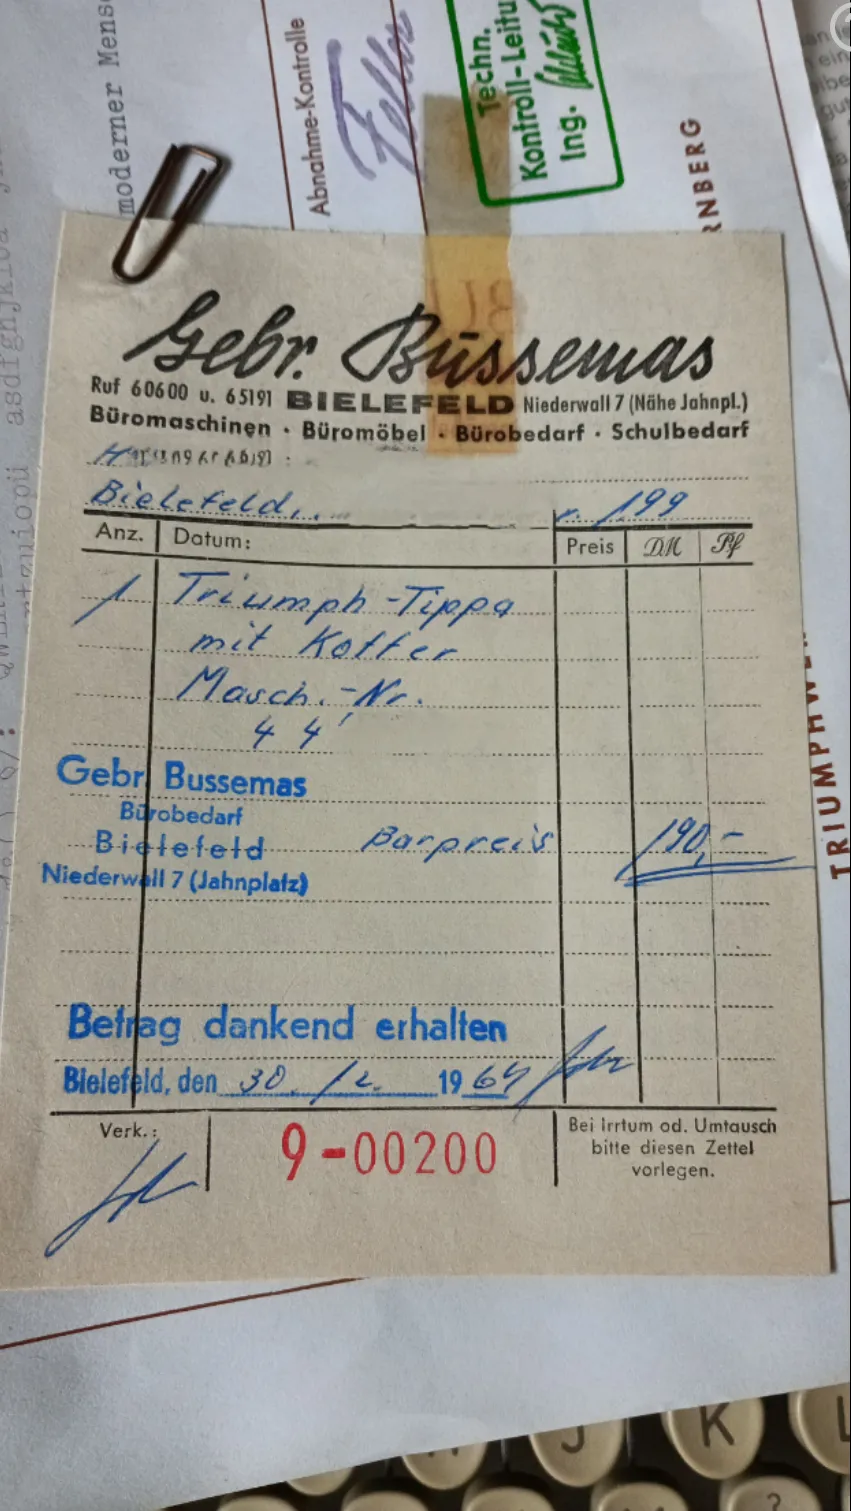 moderner Mens
Abnahme-Kontrolle
Techn.
Kontroll-Leitu
Ing.
RNBERG
Gebr. Bussemas
Ruf 60600 u. 65191 BIELEFELD Niederwall 7 (Nähe Jahnpl.)
Büromaschinen · Büromöbel · Bürobedarf · Schulbedarf
Bielefeld,
r. 199
Anz. Datum: Preis DM Pf
1 Triumph-Tippa
mit Koffer
Masch.-Nr.
4 4
Gebr. Bussemas
Bürobedarf
Bielefeld Barpreis 190,-
Niederwall 7 (Jahnplatz)
TRIUMPHWE
Betrag dankend erhalten
Bielefeld, den 30. 12. 1964
Verk.: 9-00200 Bei Irrtum od. Umtausch
bitte diesen Zettel
vorlegen.
J K L